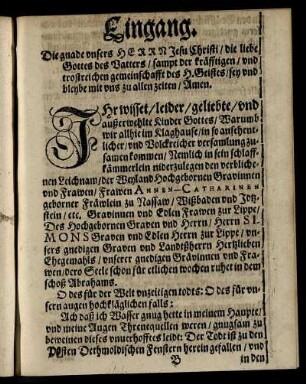 Eingang.
Die gnade vnsers HERRN Jesu Christi / die liebe
Gottes des Vatters / sampt der kräfftigen / vnd
trostreichen gemeinschafft des H. Geistes / sey vnd
bleybe mit vns zu allen zeiten / Amen.
IHr wisset / leider / geliebte / vnd
außerwehlte Kinder Gottes / Warumb
wir allhie im Klaghause / in so ansehent-
licher / vnd Volckreicher versamlung zu-
samen kommen / Nemlich in sein Schlaff-
kämmerlein niderzulegen den verbliche-
nen Leichnam / der Weyland Hochgebornen Gravinnen
vnd Frawen / Frawen ANNEN-CATHARINEN
geborner Fräwlein zu Nassaw / Wißbaden vnd Itz-
stein / etc. Gravinnen vnd Edlen Frawen zur Lippe /
Des Hochgebornen Graven vnd Herrn / Herrn SI-
MONS Graven vnd Edlen Herrn zur Lippe / vn-
sers gnedigen Graven vnd Landtßherrn Hertzlieben
Ehegemahls / vnserer gnedigen Grävinnen vnd Fra-
wen / dero Seele schon für etlichen wochen ruhet in dem
schoß Abrahams.
O des für der Welt vnzeitigen todts: O des für vn-
sern augen hochkläglichen falls:
Ach daß ich Wasser gnug hette in meinem Haupte /
vnd meine Augen Threnequellen weren / gnugsam zu
beweinen dieses vnuerhofftes leid: Der Todt ist zu den
Hösten Dethmoldischen Fenstern herein gefallen / vnd
B in den